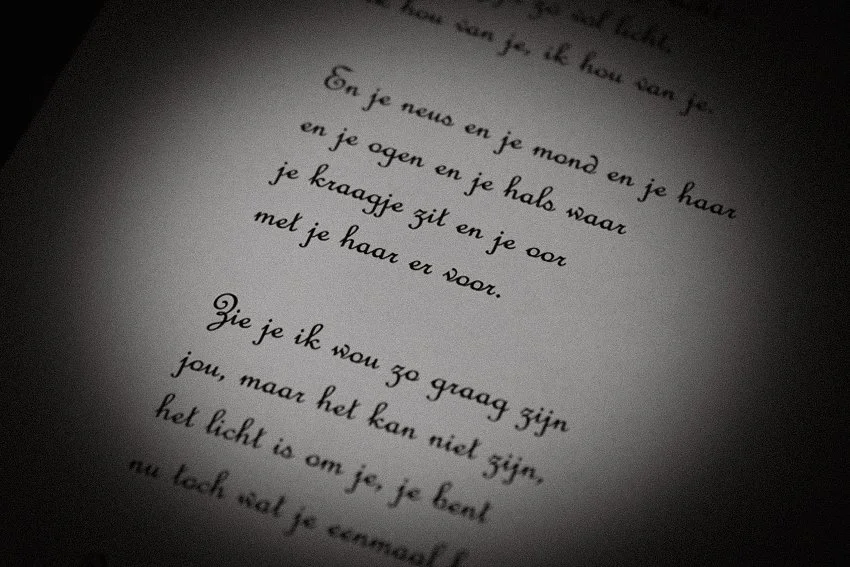 zo vol licht,
ik hou van je, ik hou van je.
En je neus en je mond en je haar
en je ogen en je hals waar
je kraagje zit en je oor
met je haar er voor.
Zie je ik wou zo graag zijn
jou, maar het kan niet zijn,
het licht is om je, je bent
nu toch wat je eenmaal